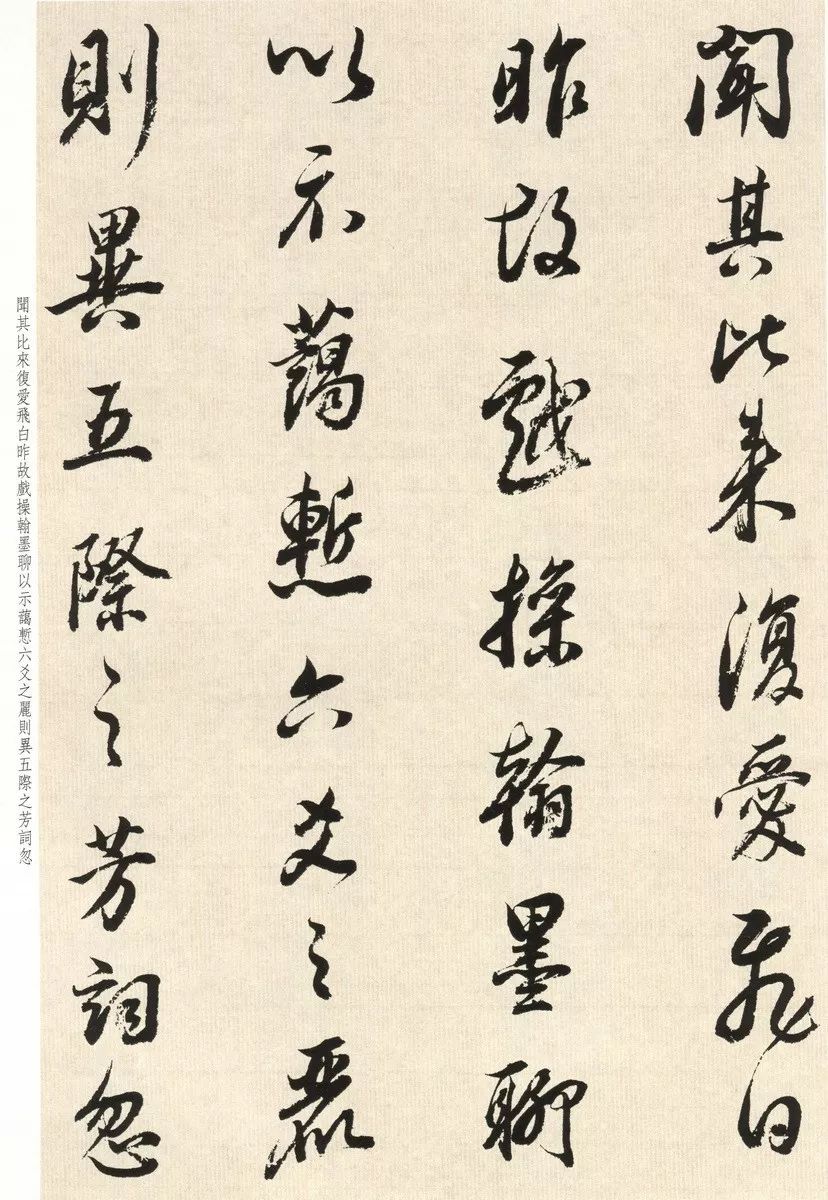 聞其比來復愛飛白
昨故戲操翰墨聊
以示藹慙六爻之麗
則異五際之芳詞忽
聞其比來復愛飛白昨故戲操翰墨聊以示藹慙六爻之麗則異五際之芳詞忽